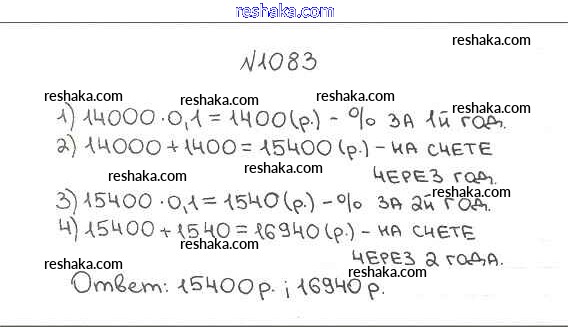 reshaka.com
reshaka.com
№1083
reshaka.com
reshaka.com
reshaka.com
reshaka.com
1) 14000·0,1=1400(р.)-% ЗА 1й ГОД.
reshaka.com
2) 14000+1400=15400(р.)-НА СЧЕТЕ
reshaka.com
ЧЕРЕЗ ГОД.
reshaka.com
reshaka.com
3) 15400·0,1=1540(р.)-% ЗА 2й ГОД.
4) 15400+1540=16940(р.)-НА СЧЕТЕ
reshaka.com
reshaka.com
ЧЕРЕЗ 2 ГОДА.
reshaka.com
reshaka.com
Ответ: 15400р.; 16940р.
reshaka.com